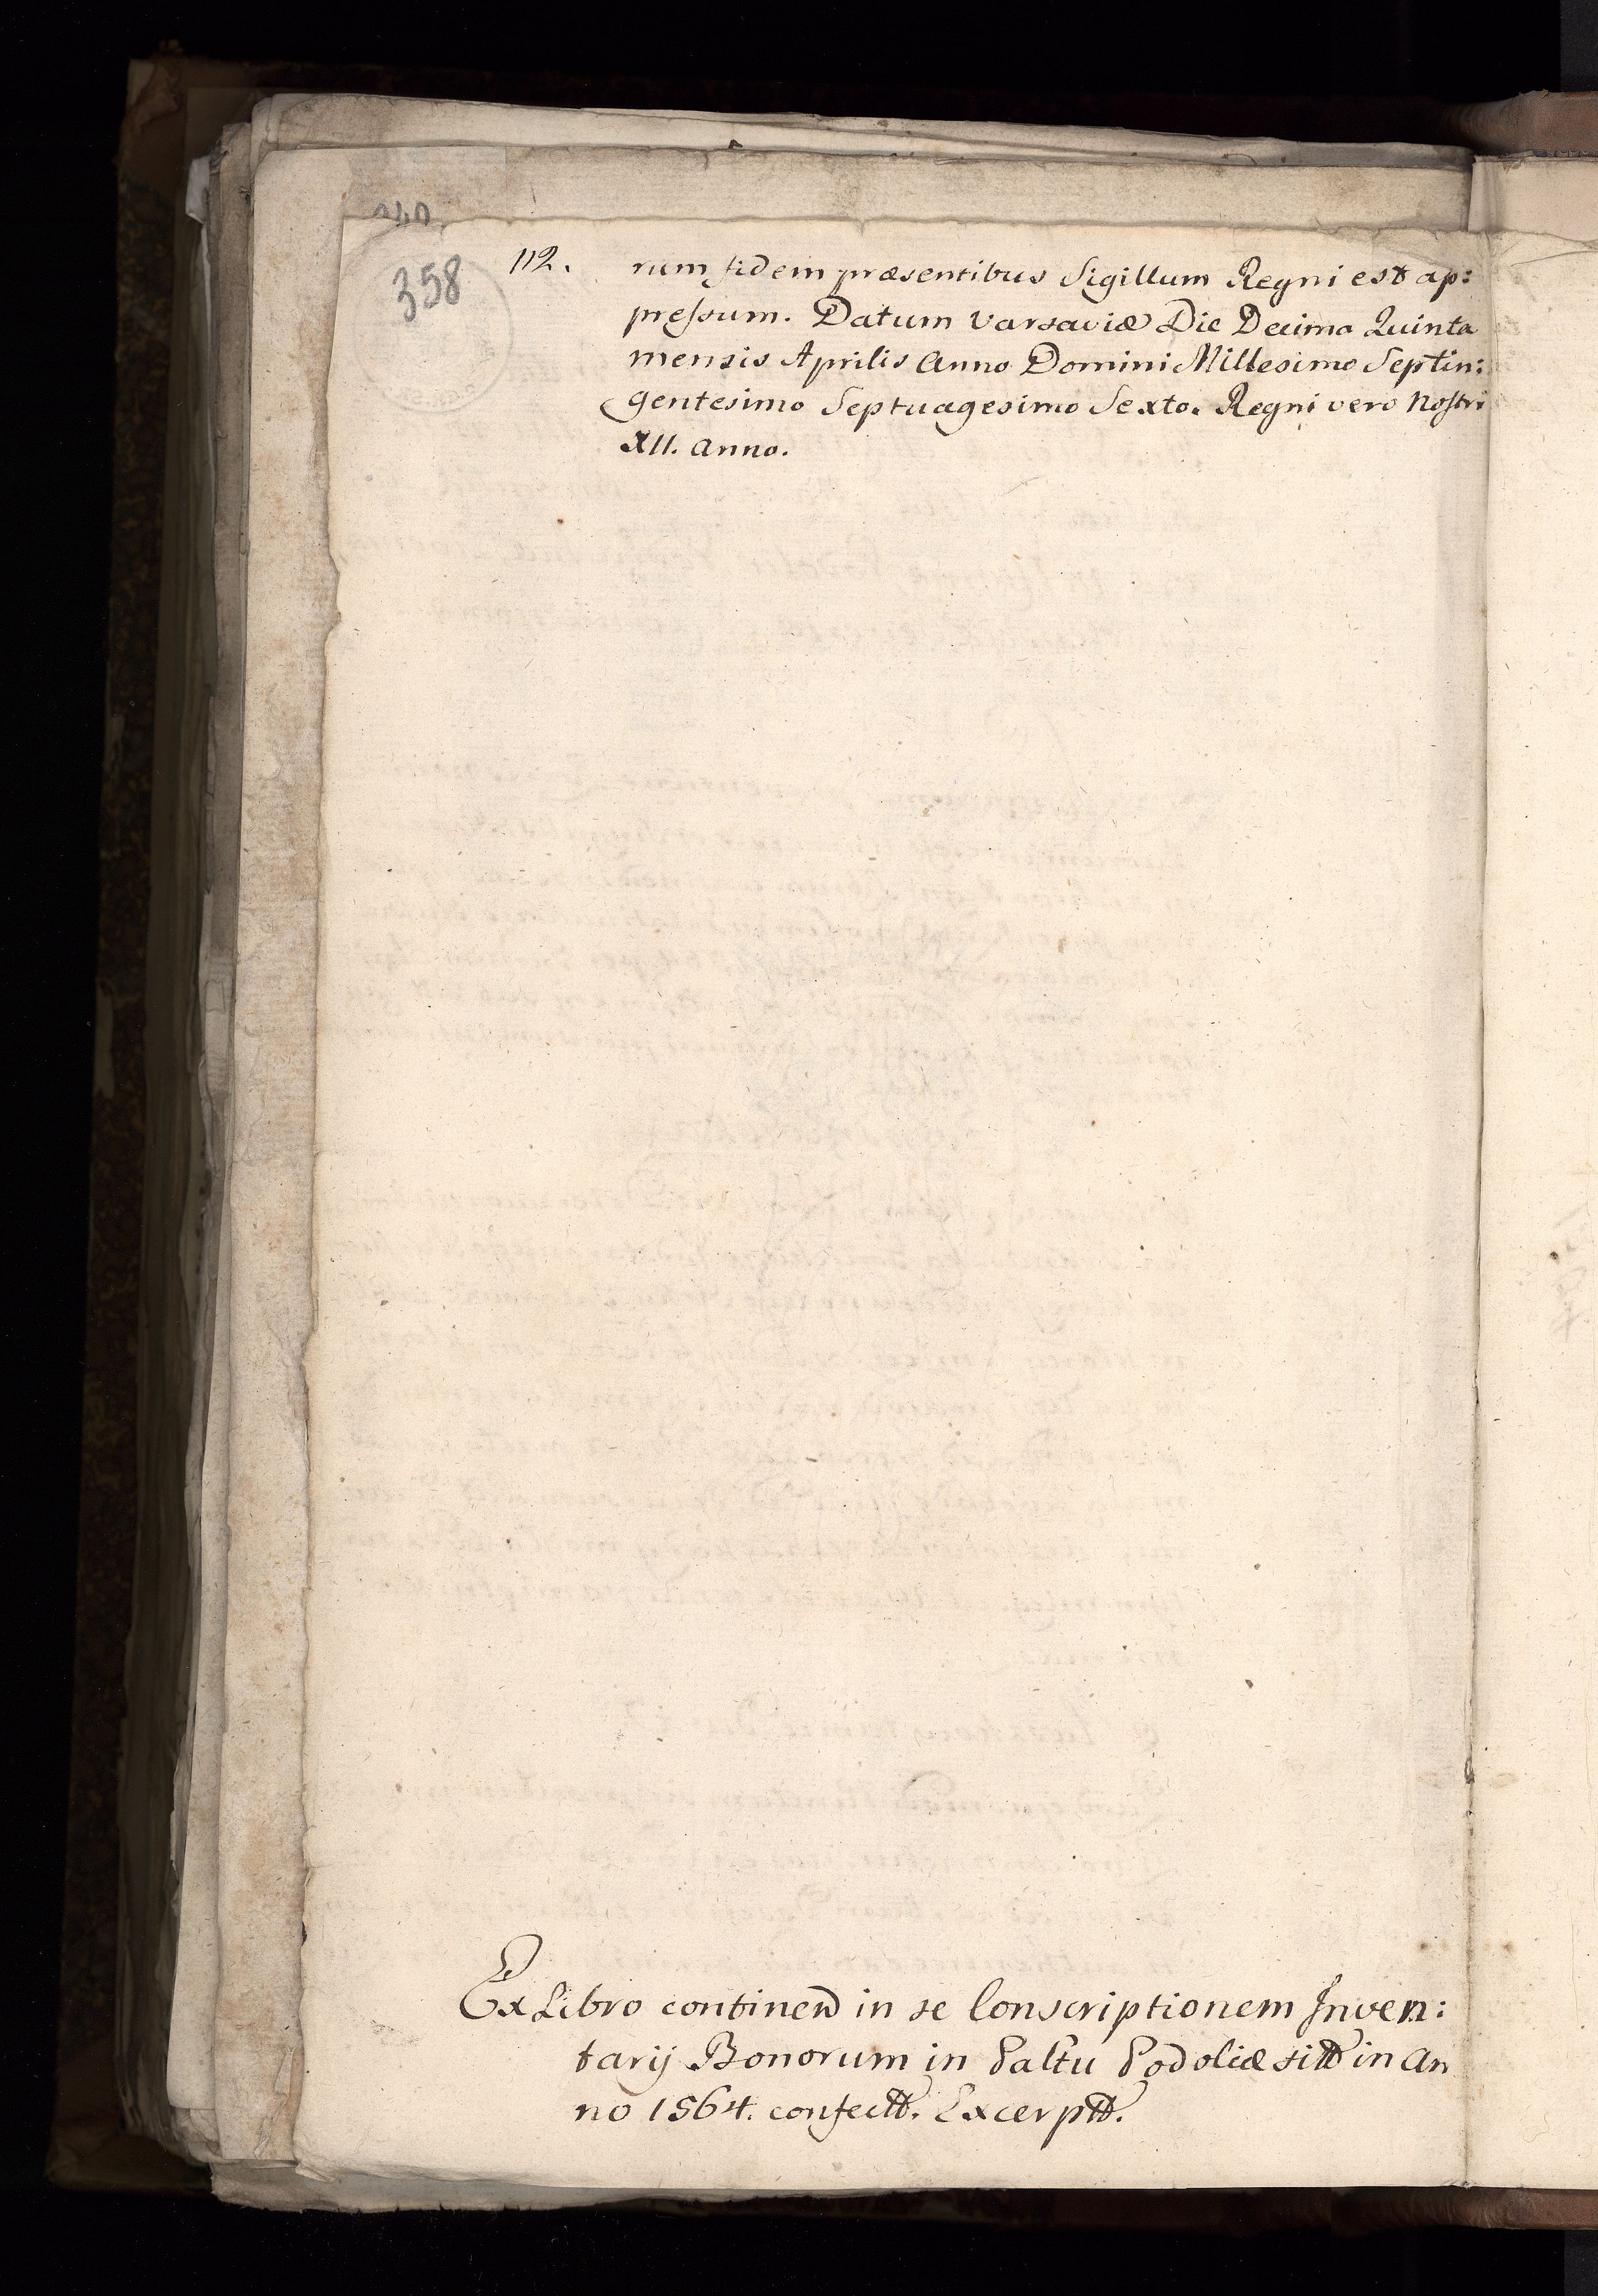 358
112. rum fidem præsentibus Sigillum Regni est ap:
preſsum. Datum Varsaviæ Die Decima Quinta
mensis Aprilis Anno Domini Millesimo Septin:
gentesimo Septuagesimo Sexto. Regni vero Noſtri
XII. Anno.
Ex Libro continen in se Conscriptionem Inven:
tarij Bonorum in Paltu Podoliæ sitt in An
no 1564. confectt. Excerptt.